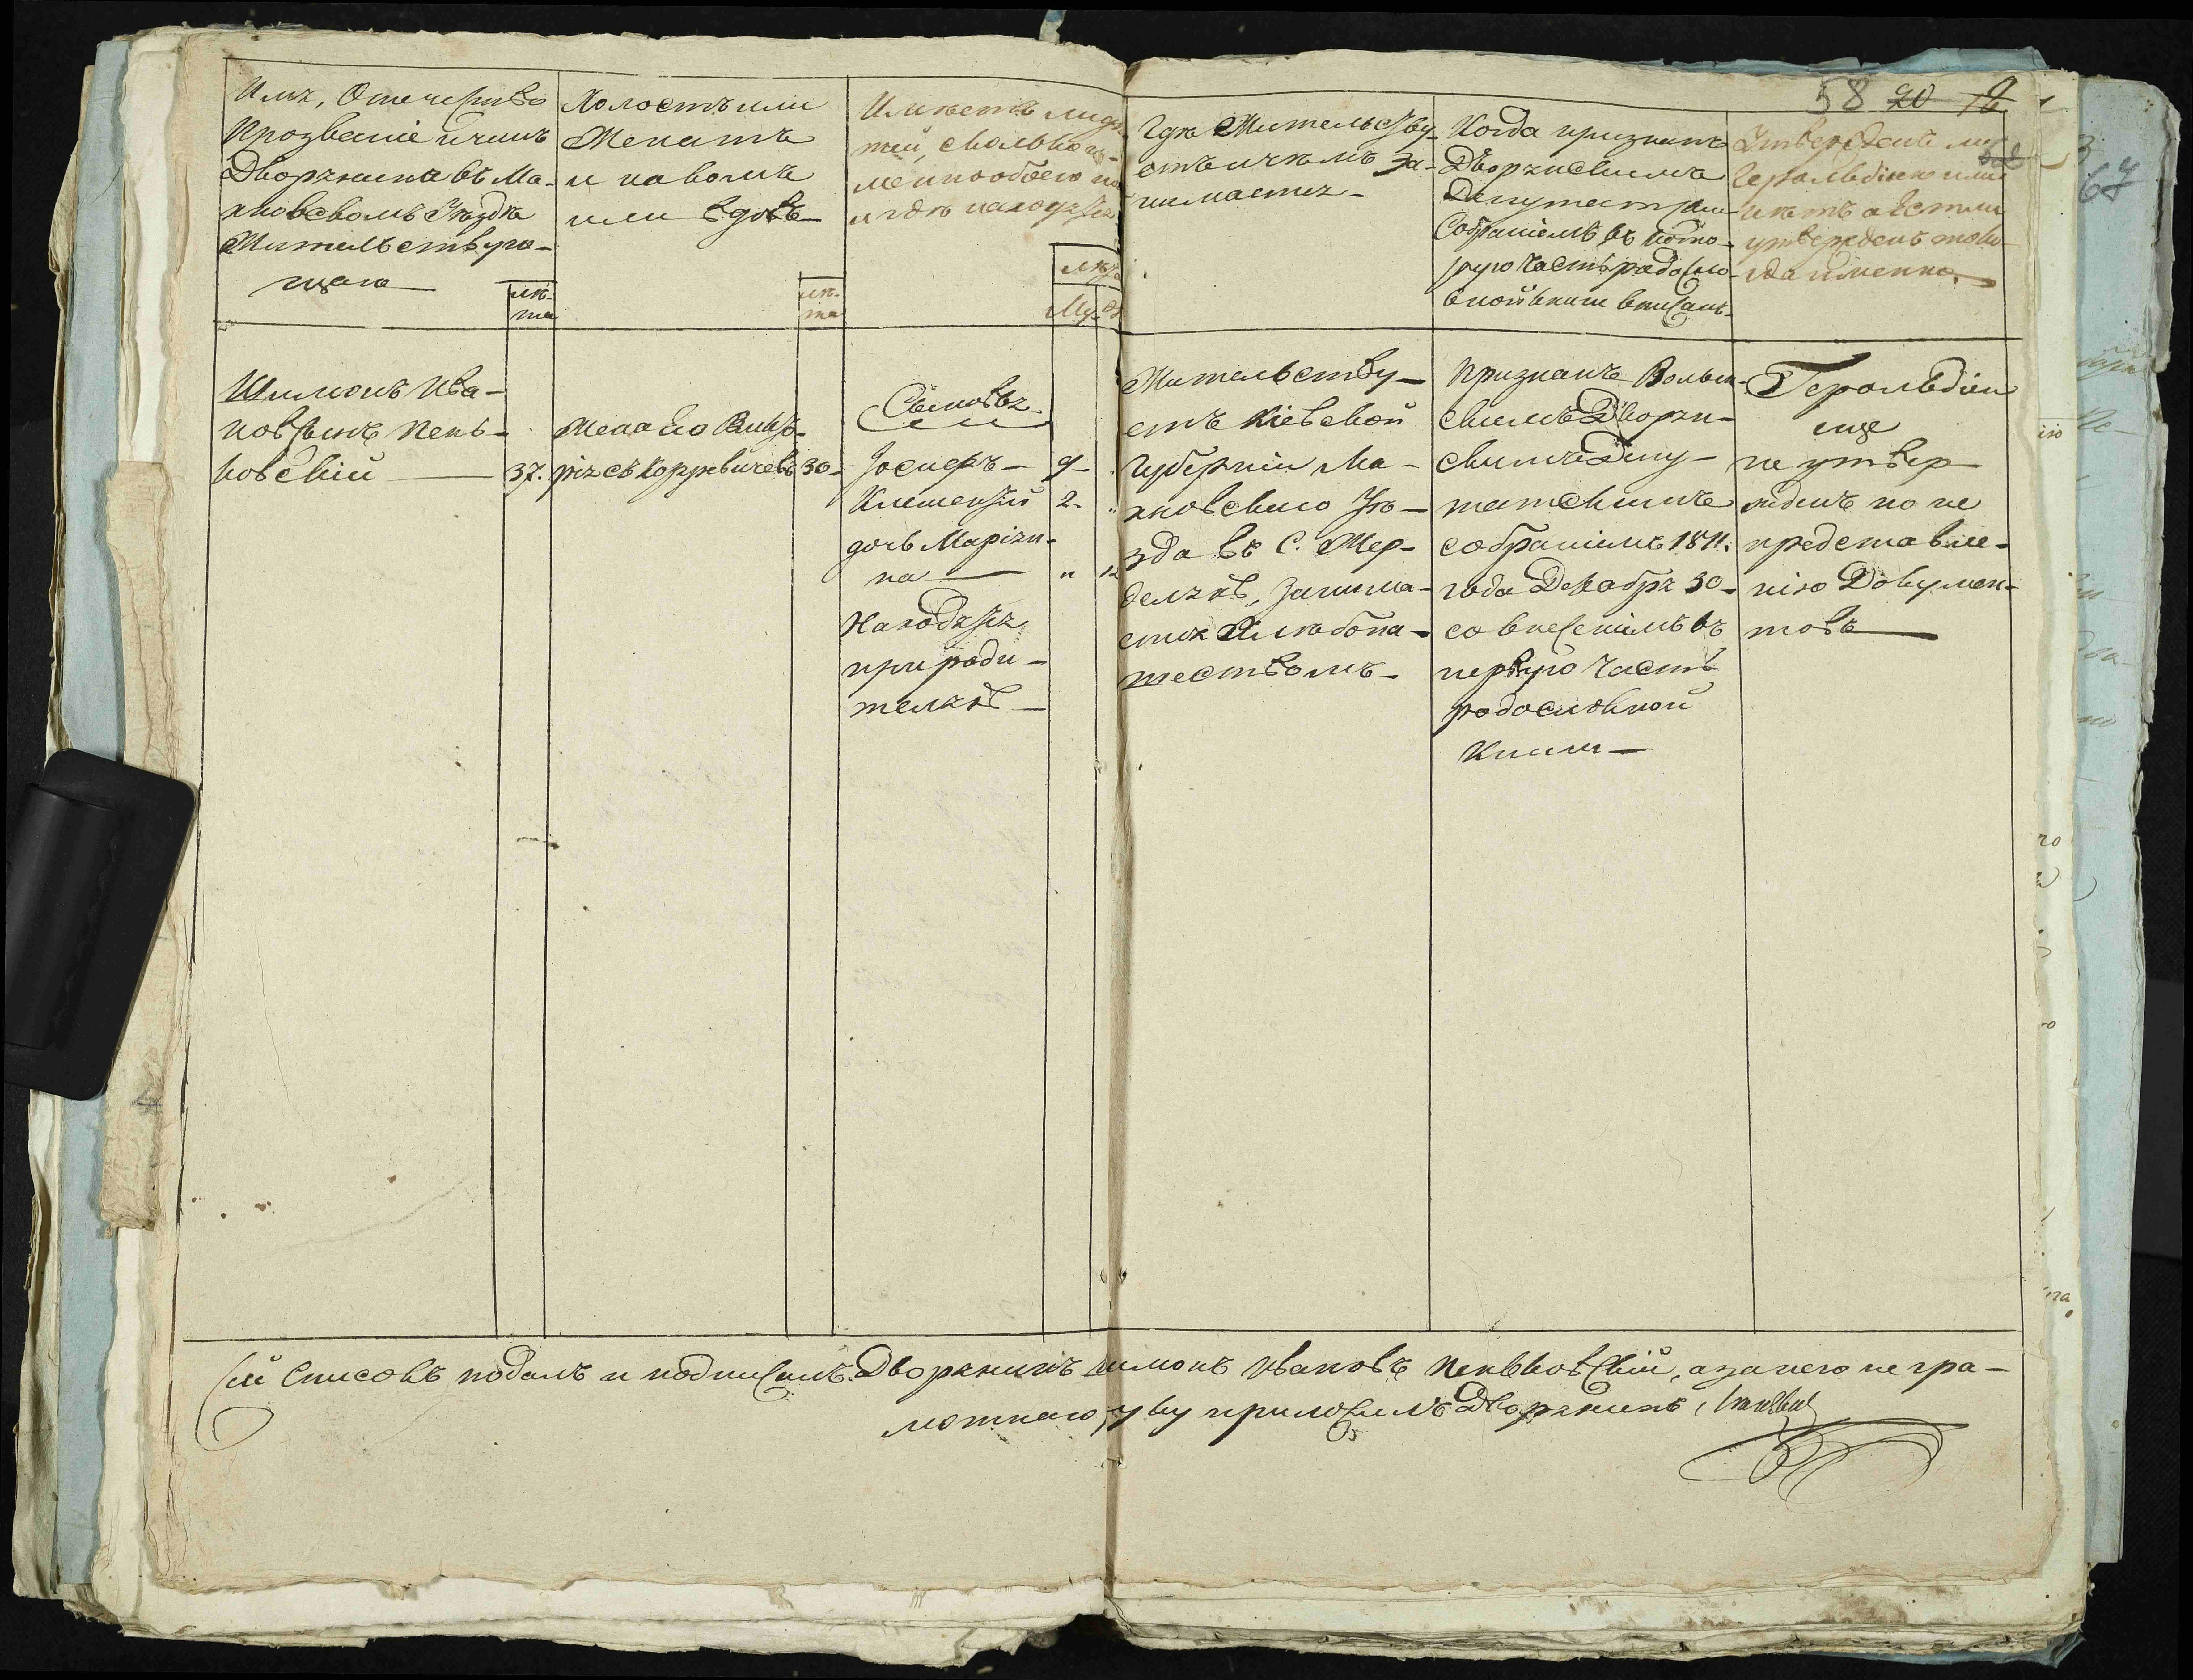 58 20
Имя, Отечество
Прозвание и чинъ
Дворянина въ Ма-
хновскомъ Уѣздѣ
Жительствую-
щаго
лѣ-
та
Холостъ или
Женатъ
и на комъ
или вдовъ
лѣ-
та
Имѣетъ ли дѣ-
тей, сколько
именно обоего по
и гдѣ находятся
лѣта
Му
Гдѣ Жительству-
етъ и чѣмъ за-
нимается
Когда признанъ
Дворянскимъ
Депутатским
Собраніемъ въ кото-
рую часть родосло-
вной книги внисанъ
Утвержденъ ли
Герольдіею или
нѣтъ а естли
утвержденъ то ко-
гда именно
Шимонъ Ива-
новъ сынъ Пень-
ковскій 37.
Женатъ на Викто-
ріи съ Корженевичевъ 30
Сыновья
Іосифъ 9
Клеменсій 2
дочь Маріян-
на " 12
Находятся
при роди-
теляхъ
Жительству-
етъ Кіевской
Губерніи Ма-
хновскаго Уѣ-
зда въ С. Жер-
деляхъ, занима-
ется Хлѣбопа-
шествомъ
Признанъ Волын-
скимъ Дворян-
скимъ Депу-
татскимъ
собраніемъ 1811.
года Декабря 30
со внесеніемъ въ
первую часть
родословной
Книги
Герольдіею
еще
не утвер-
жденъ по не
представле-
нію Докумен-
товъ
Сей Списокъ подалъ и подписалъ Дворянинъ Шимонъ Ивановъ Пеньковскій, а за него негра-
мотнаго руку приложилъ Дворянинъ